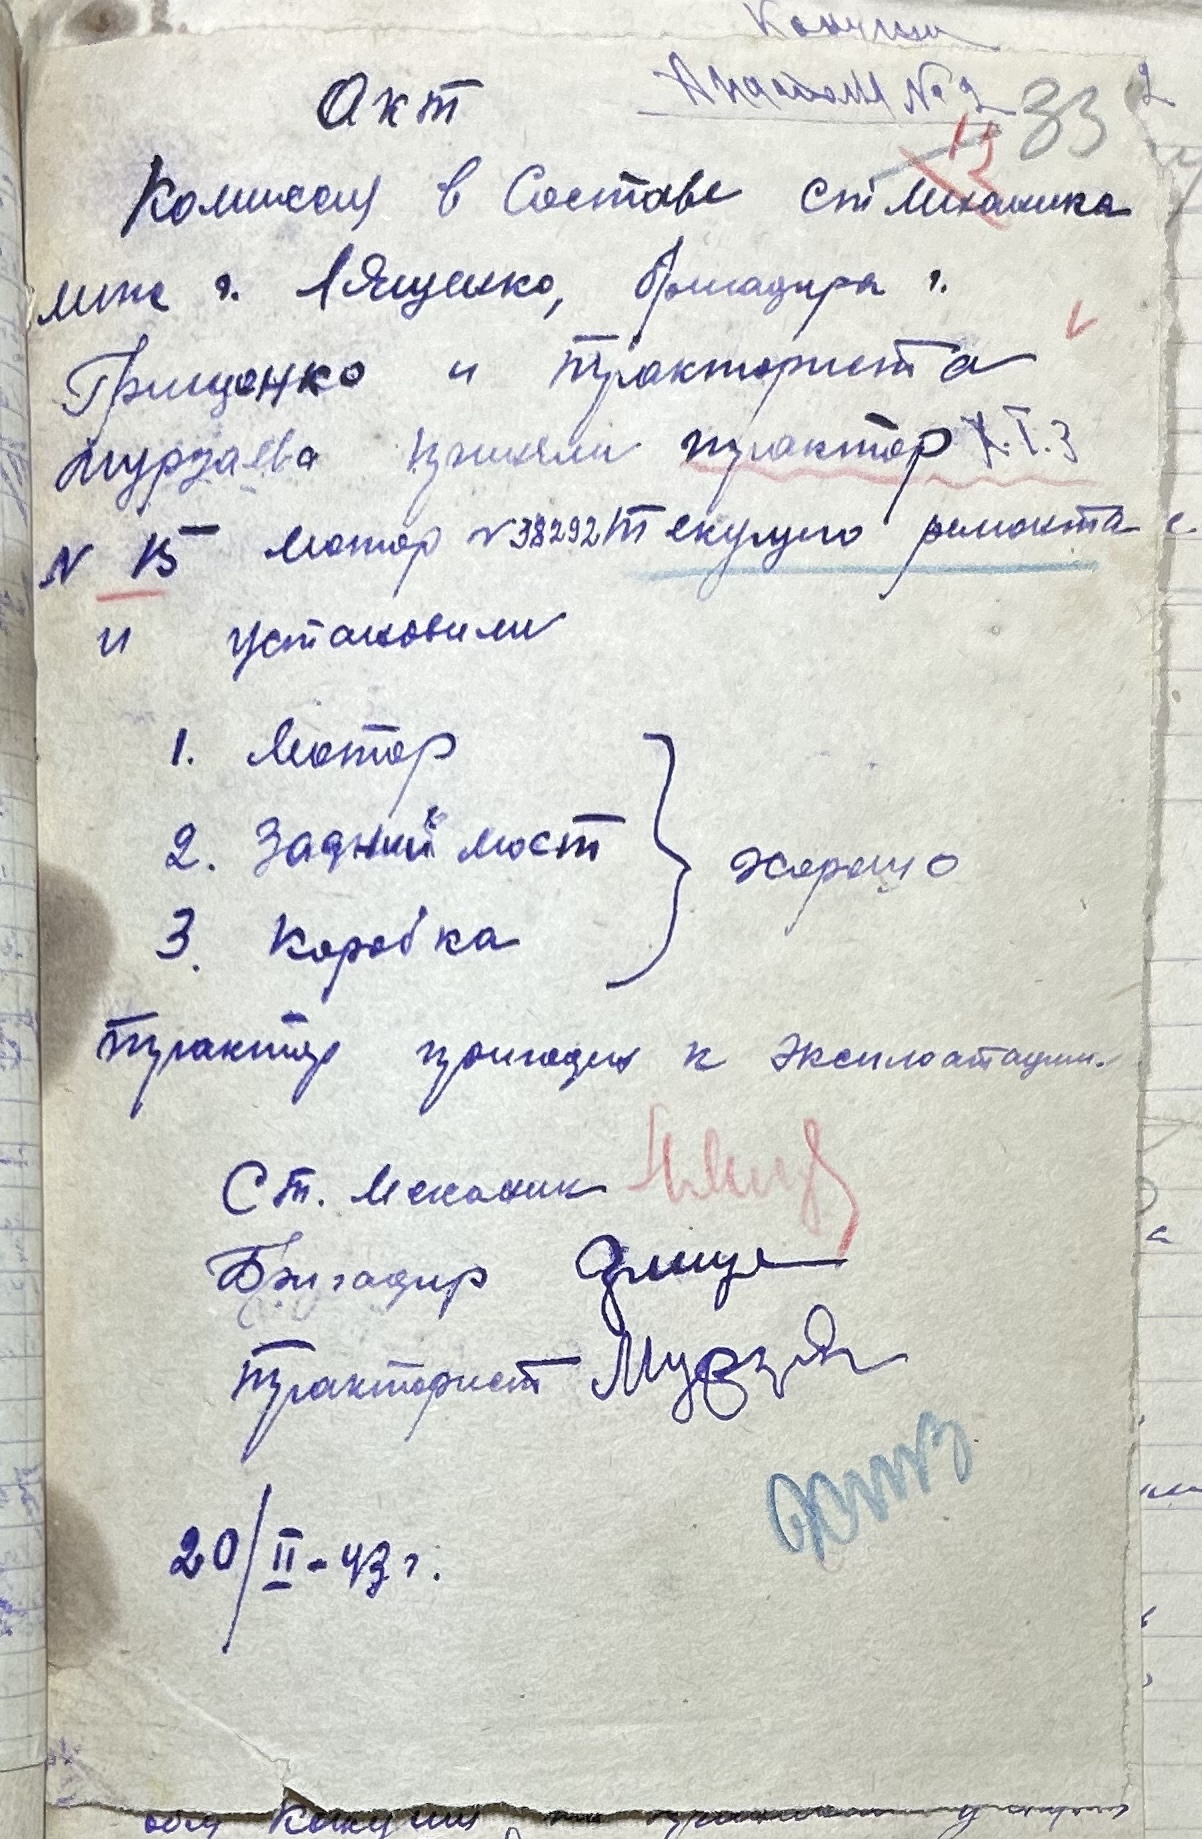 № 2 33 2
Акт
Комиссия в Составе ст Механика
т. Ященко, бригадира т.
Грищенко и тракториста
Мурзаева приняли трактор Х.Т.З
N 15 Мотор N 38292 Текущего ремонта
и установили
1. Мотор
2. Задний мост
3. Коробка
хорошо
Трактор пригоден к эксплоатации.
Ст. Механик
Бригадир
Тракторист Мурз
20/II-43 г.